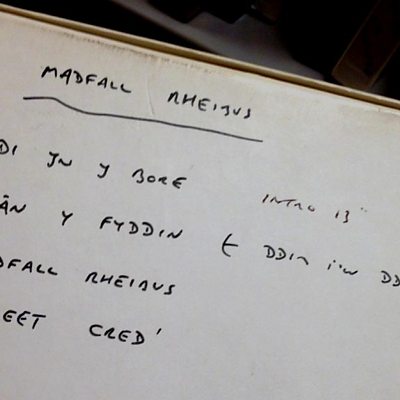 MADFALL RHEIBUS
DI YN Y BORE INTRO 13"
ÂN Y FYDDIN ( DDIM I'W DD
DFALL RHEIBUS
EET CRED'